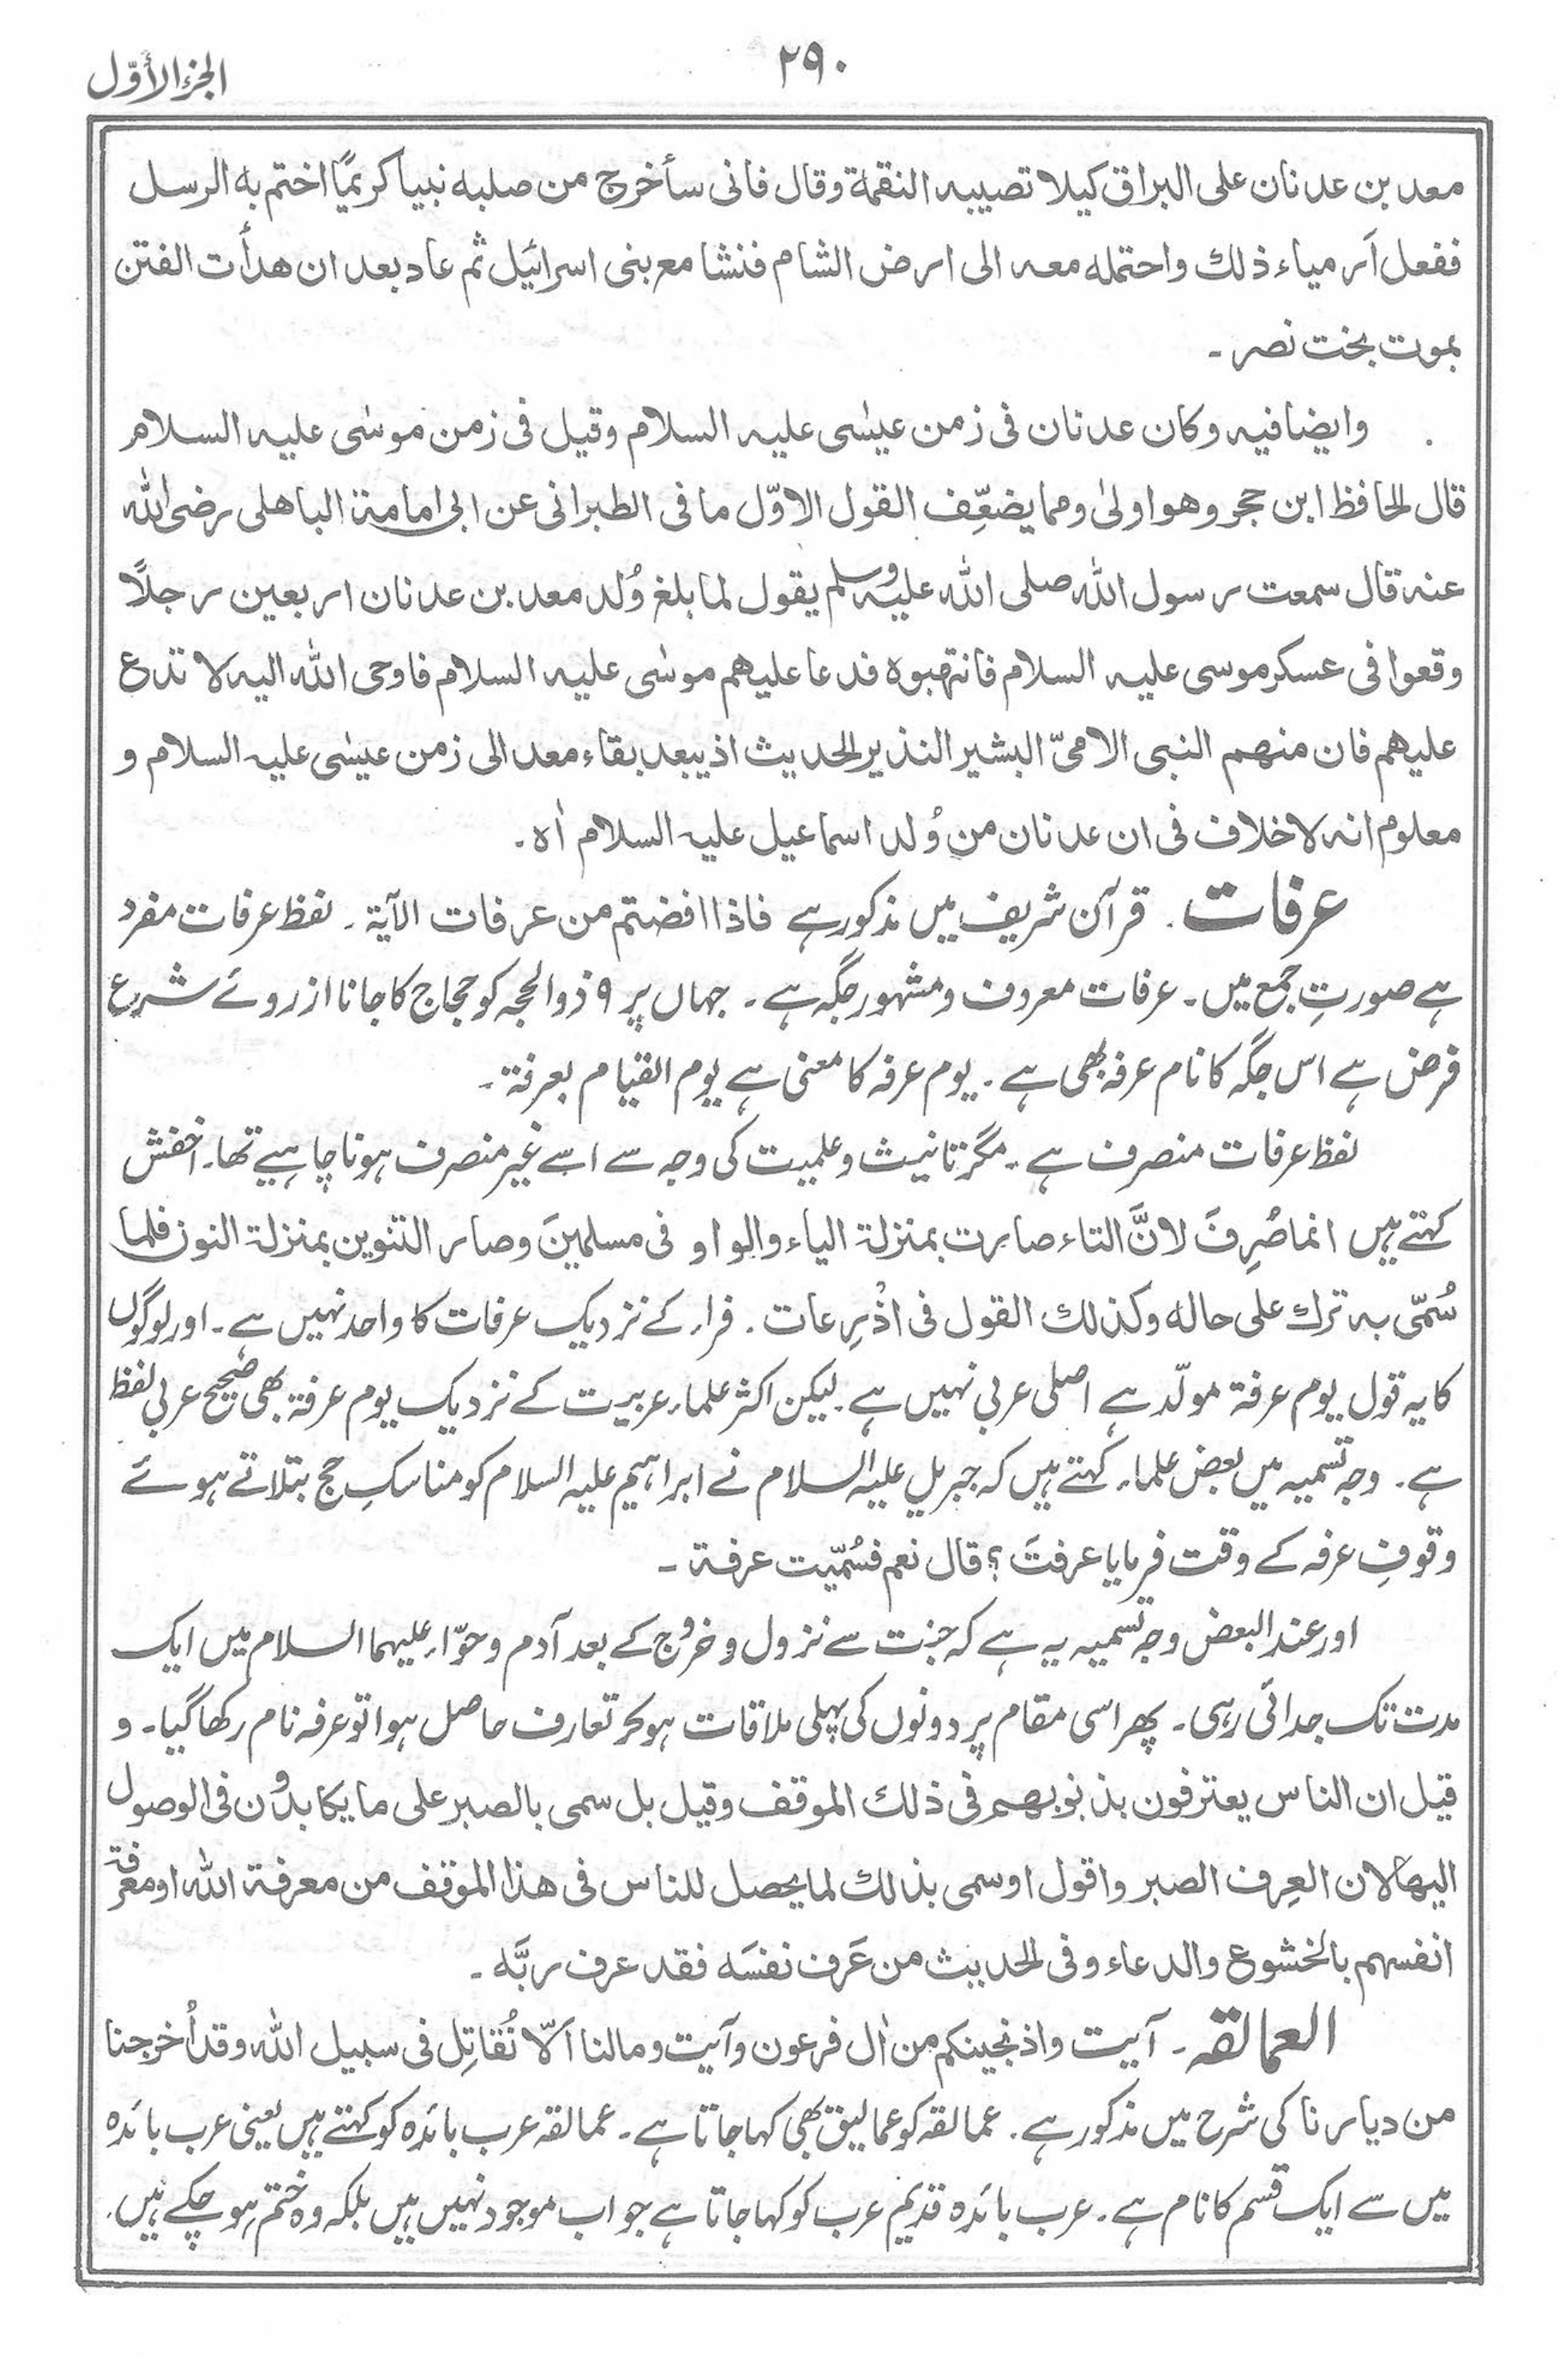 ۲۹۰
الجزء الأوّل
معد بن عدنان على البراق كيلا تصيبه النقمة وقال فانى سأخرج من صلبه نبيا كريمًا اختم به الرسل
ففعل اَرمياء ذلك واحتمله معه الى ارض الشام فنشا مع بنى اسرائيل ثم عاد بعد ان هدأت الفتن
بموت بخت نصر ۔
وايضا فيه وكان عدنان فى زمن عيسٰى عليه السلام وقيل فى زمن موسٰى عليه السلام
قال الحافظ ابن حجر وهو اولىٰ ومما يضعِّف القول الاوّل ما فى الطبرانى عن ابى امامة الباهلى رضى الله
عنه قال سمعت رسول الله صلى الله عليه وسلم يقول لما بلغ وُلد معد بن عدنان اربعين رجلاً
وقعوا فى عسكر موسى عليه السلام فانتهبوه فدعا عليهم موسٰى عليه السلام فاوحى الله اليه لا تدع
عليهم فان منهم النبى الامىّ البشير النذير الحديث اذ يبعد بقاء معد الى زمن عيسٰى عليه السلام و
معلوم انه لا خلاف فى ان عدنان من وُلد اسماعيل عليه السلام اٰه۔
عرفات ۔ قرآن شریف میں مذکور ہے فاذا افضتم من عرفات الآية ۔ لفظ عرفات مفرد
ہے صورتِ جمع میں ۔ عرفات معروف و مشہور جگہ ہے ۔ جہاں پر ۹ ذوالحجہ کو حجاج کا جانا از روئے شرع
فرض ہے اس جگہ کا نام عرفہ بھی ہے ۔ یوم عرفہ کا معنی ہے یوم القیام بعرفة ۔
لفظ عرفات منصرف ہے ۔ مگر تانیث و علمیت کی وجہ سے اسے غیر منصرف ہونا چاہیے تھا ۔ اخفش
کہتے ہیں انما صُرِفَ لانَّ التاء صارت بمنزلة الياء والواو فى مسلمينَ وصار التنوين بمنزلة النون فلما
سُمّى به ترك على حاله وكذلك القول فى اذْرِعات ۔ فراء کے نزدیک عرفات کا واحد نہیں ہے ۔ اور لوگوں
کا یہ قول یوم عرفة مولّد ہے اصلی عربی نہیں ہے ۔ لیکن اکثر علماء عربیت کے نزدیک یوم عرفة بھی صحیح عربی لفظ
ہے ۔ وجہ تسمیہ میں بعض علماء کہتے ہیں کہ جبریل علیہ السلام نے ابراہیم علیہ السلام کو مناسکِ حج بتلاتے ہوئے
وقوفِ عرفہ کے وقت فرمایا عرفتَ ؟ قال نعم فسُمّيت عرفة ۔
اور عند البعض وجہ تسمیہ یہ ہے کہ جنت سے نزول و خروج کے بعد آدم و حوّاء علیہما السلام میں ایک
مدت تک جدائی رہی ۔ پھر اسی مقام پر دونوں کی پہلی ملاقات ہو کر تعارف حاصل ہوا تو عرفہ نام رکھا گیا ۔ و
قيل ان الناس يعترفون بذنوبهم فى ذلك الموقف وقيل بل سمى بالصبر على ما يكابدون فى الوصول
اليها لان العِرف الصبر واقول او سمى بذالك لما يحصل للناس فى هذا الموقف من معرفة الله او معرفة
انفسهم بالخشوع والدعاء وفى الحديث من عَرف نفسَه فقد عرف ربَّه ۔
العمالقه ۔ آیت واذ نجينكم من اٰل فرعون وآیت وما لنا اَلّا نُقاتِل فى سبيل الله وقد اُخرجنا
من ديارنا کی شرح میں مذکور ہے ۔ عمالقہ کو عمالیق بھی کہا جاتا ہے ۔ عمالقہ عرب بائدہ کو کہتے ہیں یعنی عرب بائدہ
میں سے ایک قسم کا نام ہے ۔ عرب بائدہ قدیم عرب کو کہا جاتا ہے جو اب موجود نہیں ہیں بلکہ وہ ختم ہو چکے ہیں ۔